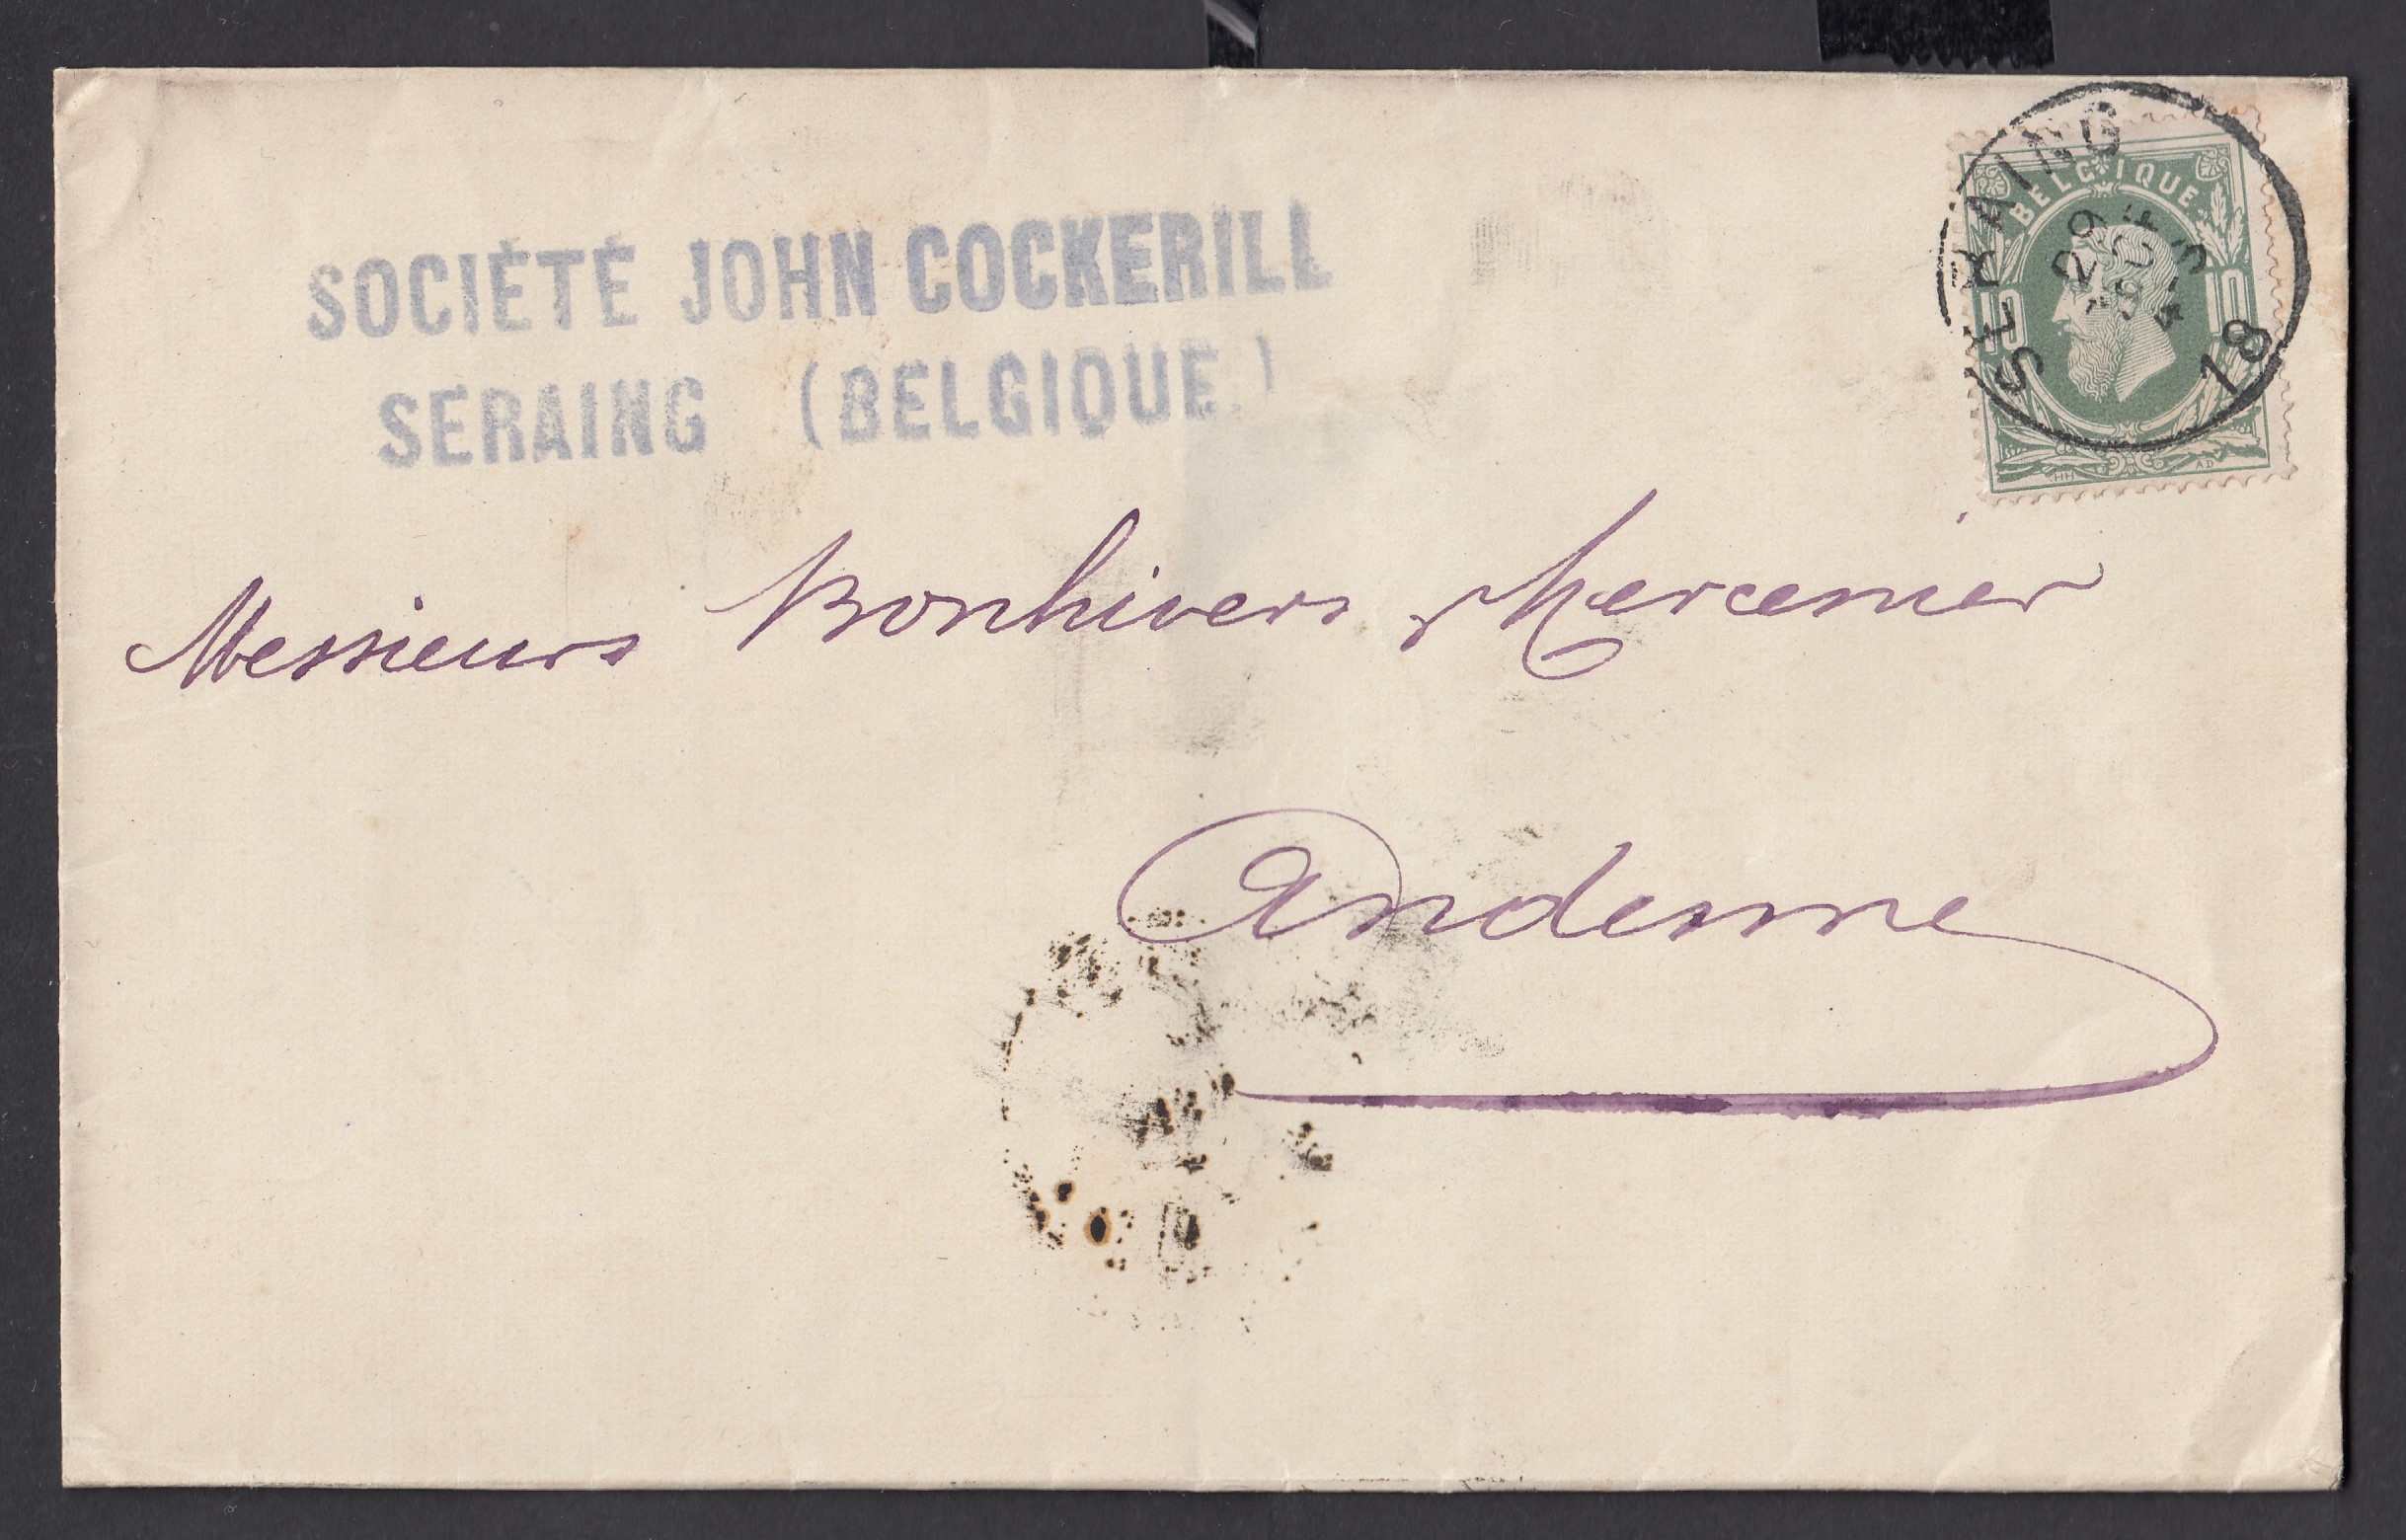 SOCIÉTÉ JOHN COCKERILL
SERAING (BELGIQUE)
SERAING
29
4-5
18
BELGIQUE
10 10
HH AD
Messieurs Bonhivers & Mercenier
Andenne